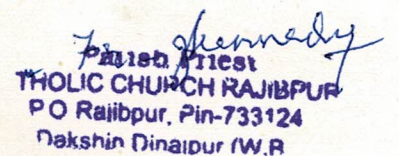 Fr. Jkennedy
Parish Priest
THOLIC CHURCH RAJIBPUR
P O Rajibpur, Pin-733124
Dakshin Dinajpur (W.B